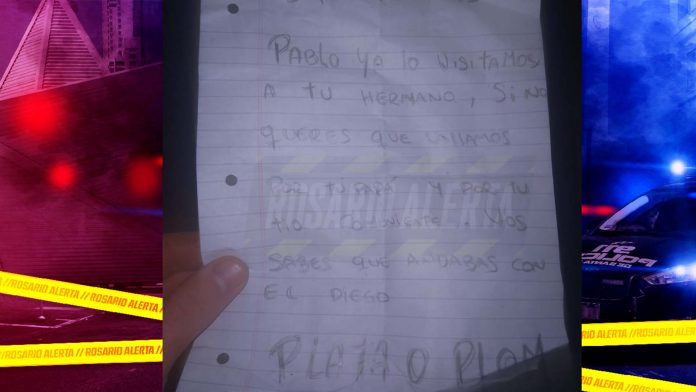 PABLO YA LO VISITAMOS
A TU HERMANO, SI NO
QUERES QUE VALLAMOS
POR TU PAPÁ Y POR TU
TIO COMUNICATE. VOS
SABES QUE ANDABAS CON
EL DIEGO
PLATA O PLOM
ROSARIO ALERTA
//ROSARIO ALERTA // ROSARIO ALERTA
// ROSARIO ALERTA
ROSARIO ALERTA //
ROSARIO ALERTA //